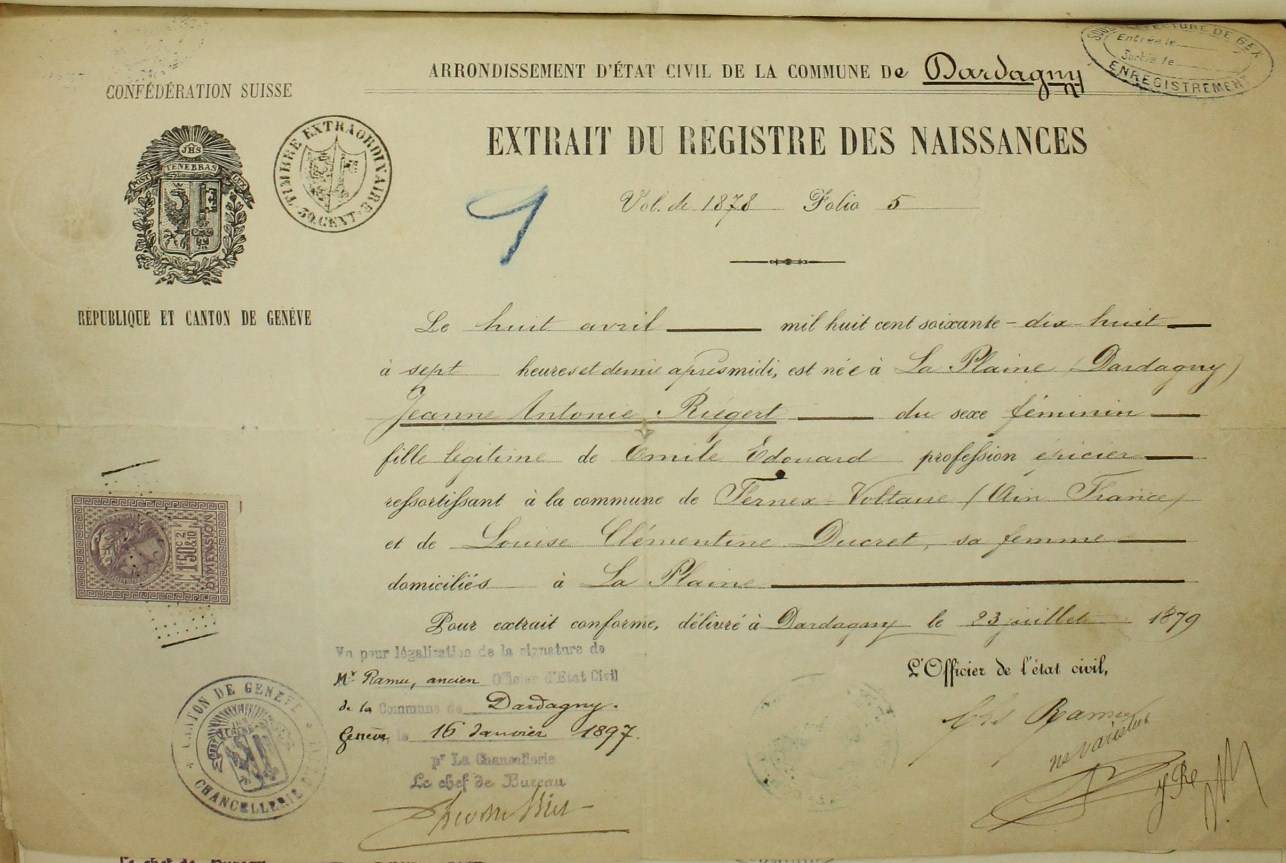 SOUS-PRÉFECTURE DE GEX
Entrée le
Sortie le
ENREGISTREMENT
ARRONDISSEMENT D'ÉTAT CIVIL DE LA COMMUNE De Dardagny
CONFÉDÉRATION SUISSE
EXTRAIT DU REGISTRE DES NAISSANCES
JHS
POST TENEBRAS LUX
TIMBRE EXTRAORDINAIRE
50 CENT.
Vol. de 1878 Folio 5
RÉPUBLIQUE ET CANTON DE GENÈVE
Le huit avril mil huit cent soixante-dix-huit
à sept heures et demie après midi, est née à La Plaine (Dardagny)
Jeanne Antonie Riegert du sexe féminin
fille légitime de Emile Edouard profession épicier
ressortissant à la commune de Fernex-Voltaire (Ain France)
et de Louise Clémentine Ducret, sa femme
domiciliés à La Plaine
Pour extrait conforme, délivré à Dardagny le 23 juillet 1879
1F50c 2/10
DIMENSION
L'Officier de l'état civil,
Vu pour légalization de la signature de
Mr Ramu, ancien Officier d'Etat Civil
de la Commune de Dardagny.
Genève, le 16 Janvier 1897.
pr La Chancellerie
Le chef de Bureau
CANTON DE GENÈVE
CHANCELLERIE
Ramu
ne varietur
Le chef de Bureau